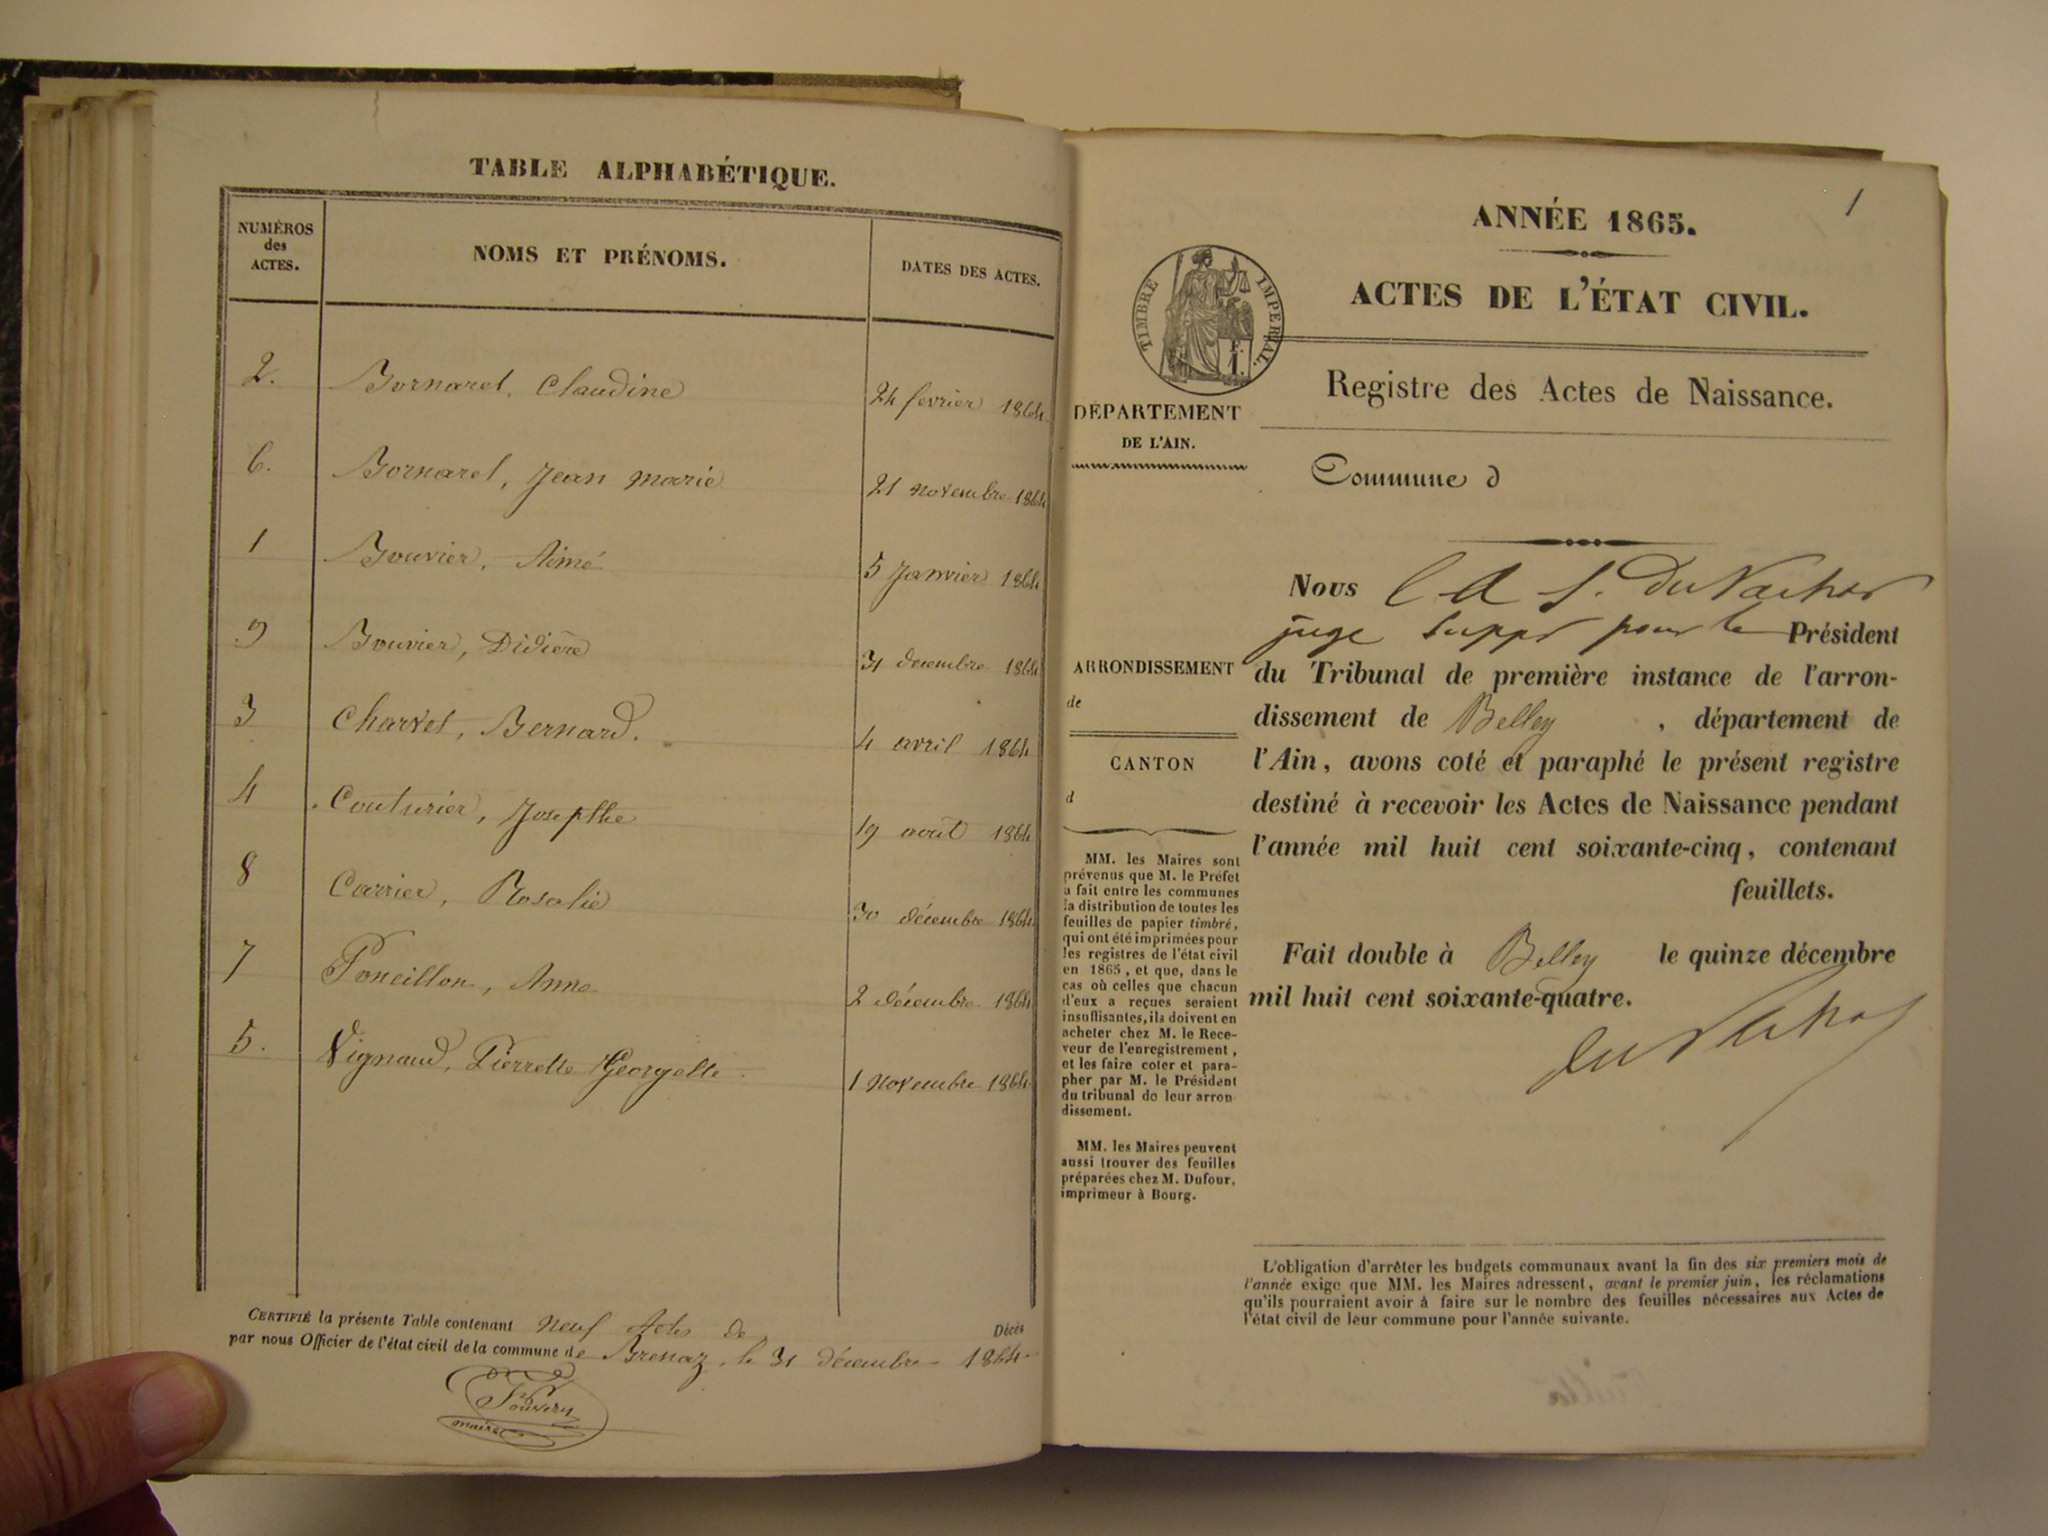 TABLE ALPHABÉTIQUE.
NUMÉROS des ACTES. NOMS ET PRÉNOMS. DATES DES ACTES.
2. Bornarel, Claudine 24 fevrier 1864
6. Bornarel, Jean Marie 21 novembre 1864
1 Bouvier, Aimé 5 Janvier 1864
9 Bouvier, Didière 31 decembre 1864
3 Charvet, Bernard. 4 avril 1864
4 Couturier, Josephte 19 août 1864
8 Carrier, Rosalie 30 décembre 1864
7 Poncillon, Anne 2 décembre 1864
5. Vignaud, Pierrette Georgette. 1 novembre 1864
CERTIFIÉ la présente Table contenant neuf Actes de Décès
par nous Officier de l'état civil de la commune de Brenaz, le 31 décembre 1864.
maire
1
ANNÉE 1865.
ACTES DE L'ÉTAT CIVIL.
TIMBRE IMPERIAL.
Registre des Actes de Naissance.
DÉPARTEMENT
DE L'AIN.
Commune d
ARRONDISSEMENT
de
CANTON
d
MM. les Maires sont
prévenus que M. le Préfet
a fait entre les communes
la distribution de toutes les
feuilles de papier timbré,
qui ont été imprimées pour
les registres de l'état civil
en 1865, et que, dans le
cas où celles que chacun
d'eux a reçues seraient
insuffisantes, ils doivent en
acheter chez M. le Rece-
veur de l'enregistrement,
et les faire coter et para-
pher par M. le Président
du tribunal de leur arron
dissement.
MM. les Maires peuvent
aussi trouver des feuilles
préparées chez M. Dufour,
imprimeur à Bourg.
Nous
juge supp pour le Président
du Tribunal de première instance de l'arron-
dissement de Belley, département de
l'Ain, avons coté et paraphé le présent registre
destiné à recevoir les Actes de Naissance pendant
l'année mil huit cent soixante-cinq, contenant
feuillets.
Fait double à Belley le quinze décembre
mil huit cent soixante-quatre.
L'obligation d'arrêter les budgets communaux avant la fin des six premiers mois de
l'année exige que MM. les Maires adressent, avant le premier juin, les réclamations
qu'ils pourraient avoir à faire sur le nombre des feuilles nécessaires aux Actes de
l'état civil de leur commune pour l'année suivante.